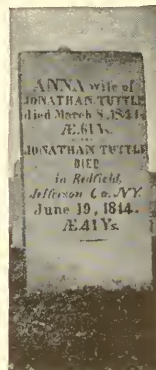 ANNA wife of
JONATHAN TUTTLE
died March 8, 1841.
Æ. 61 Ys.
JONATHAN TUTTLE
DIED
in Redfield,
Jefferson Co. NY.
June 19, 1814.
Æ. 41 Ys.